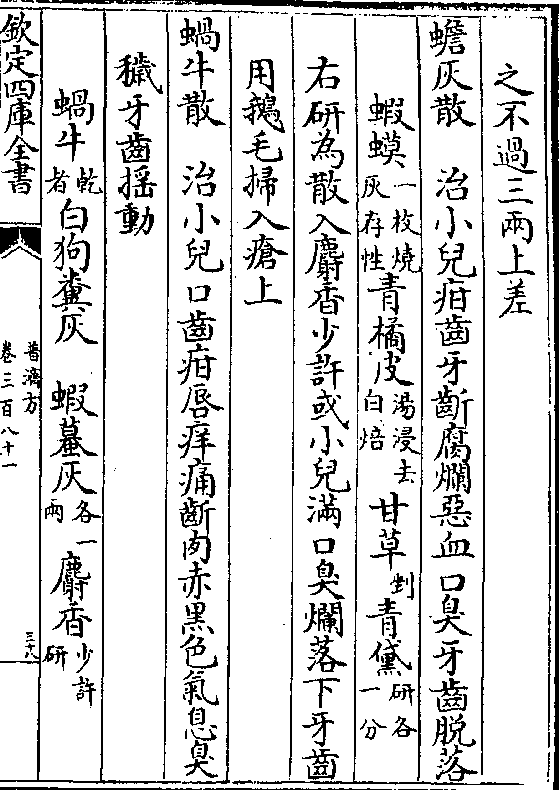 之不過三兩上差
蟾灰散　治小兒疳齒牙齗腐爛惡血口臭牙齒脱落
蝦蟆一枚燒灰存性青橘皮湯浸去白焙　甘草剉青黛研各一分
右研為散入麝香少許或小兒滿口臭爛落下牙齒
用鵝毛掃入瘡上
蝸牛散　治小兒口齒疳唇痒痛齗肉赤黑色氣息臭
穢牙齒揺動
蝸牛乾者白狗糞灰　蝦蟇灰各一兩　麝香少許研
欽定四庫全書
普濟方
卷三百八十一
三十八